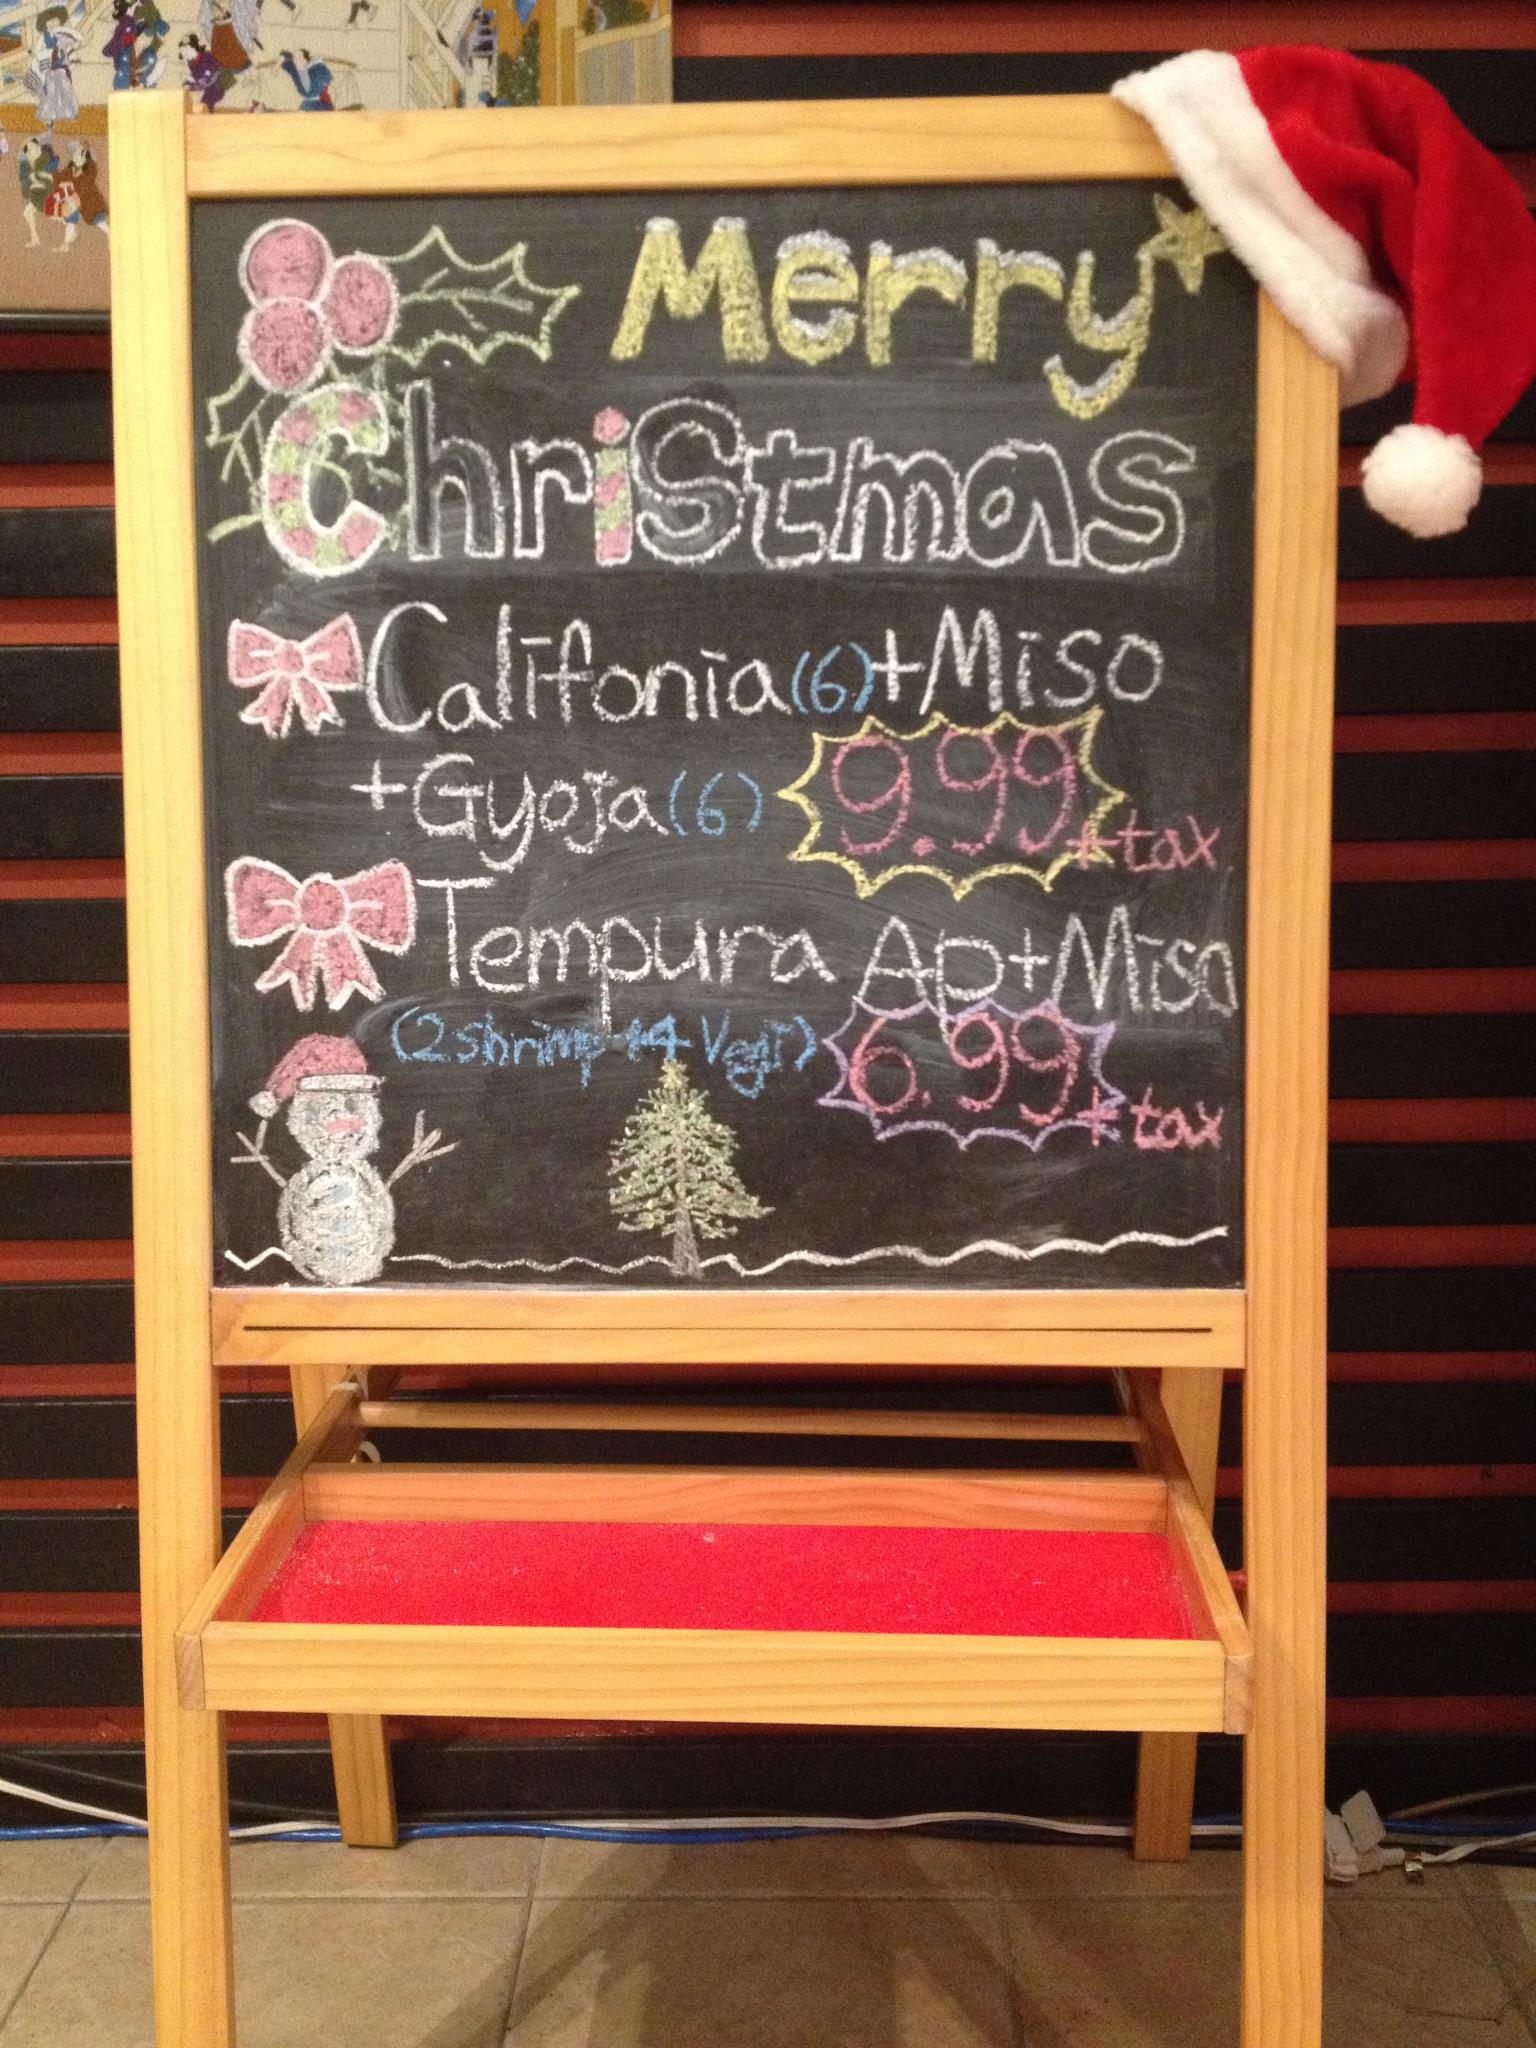 Merry
Christmas
Califonia (6) + Miso
+ Gyoja (6) 9.99 + tax
Tempura Ap + Miso
(2 shrimp + 4 Vegi) 6.99 + tax